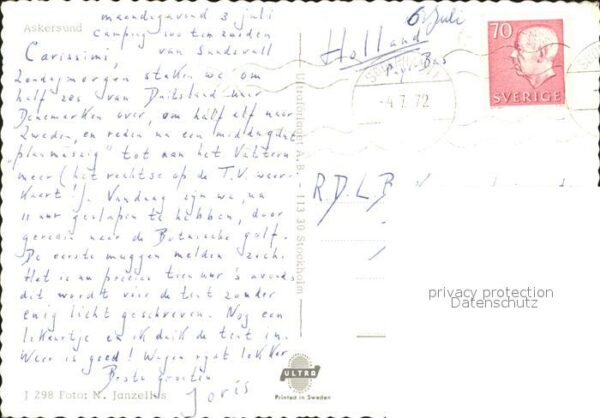 Askersund
maandagavond 3 juli
camping iets ten zuiden
van Sundsvall
Carissimi,
Zondagmorgen staken we om
half zes van Duitsland naar
Denemarken over, om half elf naar
Zweden, en reden na een middagdut
"planmässig" tot aan het Vättern
meer (het rechtse op de T.V. weer-
kaart!). Vandaag zijn we, na
11 uur geslapen te hebben, door
gereden naar de Botnische golf.
De eerste muggen melden zich.
Het is nu precies tien uur 's avonds
dit wordt vóór de tent zonder
enig licht geschreven. Nog een
lekkertje en ik duik de tent in.
Weer is goed! Wagen rijdt lekker
Beste groeten
Joris
J 298 Foto: N. Janzelius
Ultraförlaget A.B. - 113 30 Stockholm
6 Juli
Holland
Pays Bas
-4.7.72
70
SVERIGE
R.D.L.B
privacy protection
Datenschutz
ULTRA
Printed in Sweden